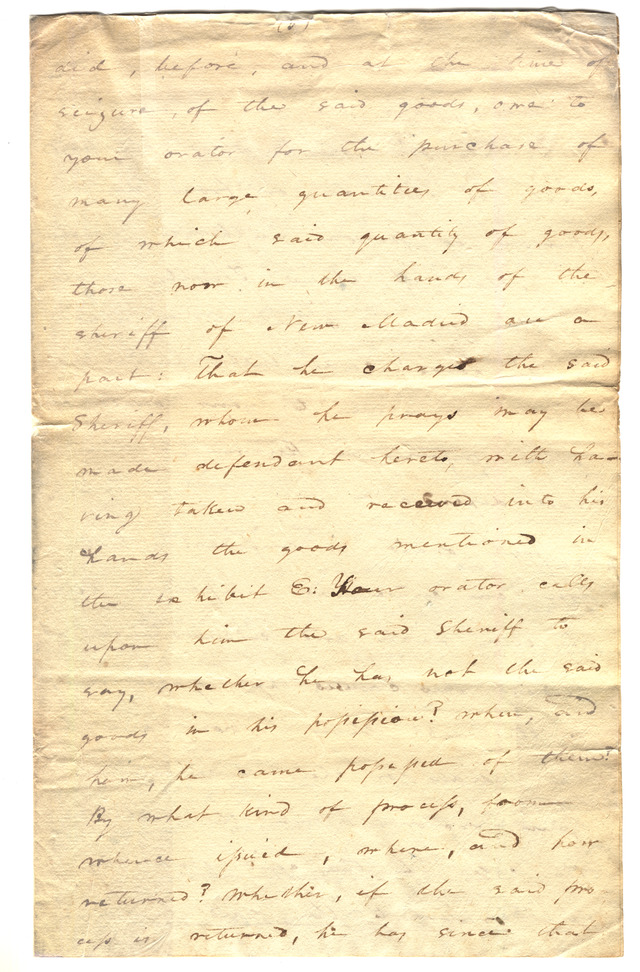 (6)
did, before, and at the time of
seizure, of the said goods, owe to
your orator for the purchase of
many large quantities of goods,
of which said quantity of goods,
those now in the hands of the
sheriff of New Madrid are a
part: That he charges the said
Sheriff, whom he prays may be
made defendant hereto, with ha-
ving taken and received into his
hands the goods mentioned in
the exhibit E: Your orator calls
upon him the said Sheriff to
say, whether he has not the said
goods in his possession? when, and
how, he came possessed of them?
By what kind of process, from
whence issued, where, and how
returned? Whether, if the said pro-
cess is returned, he has since that